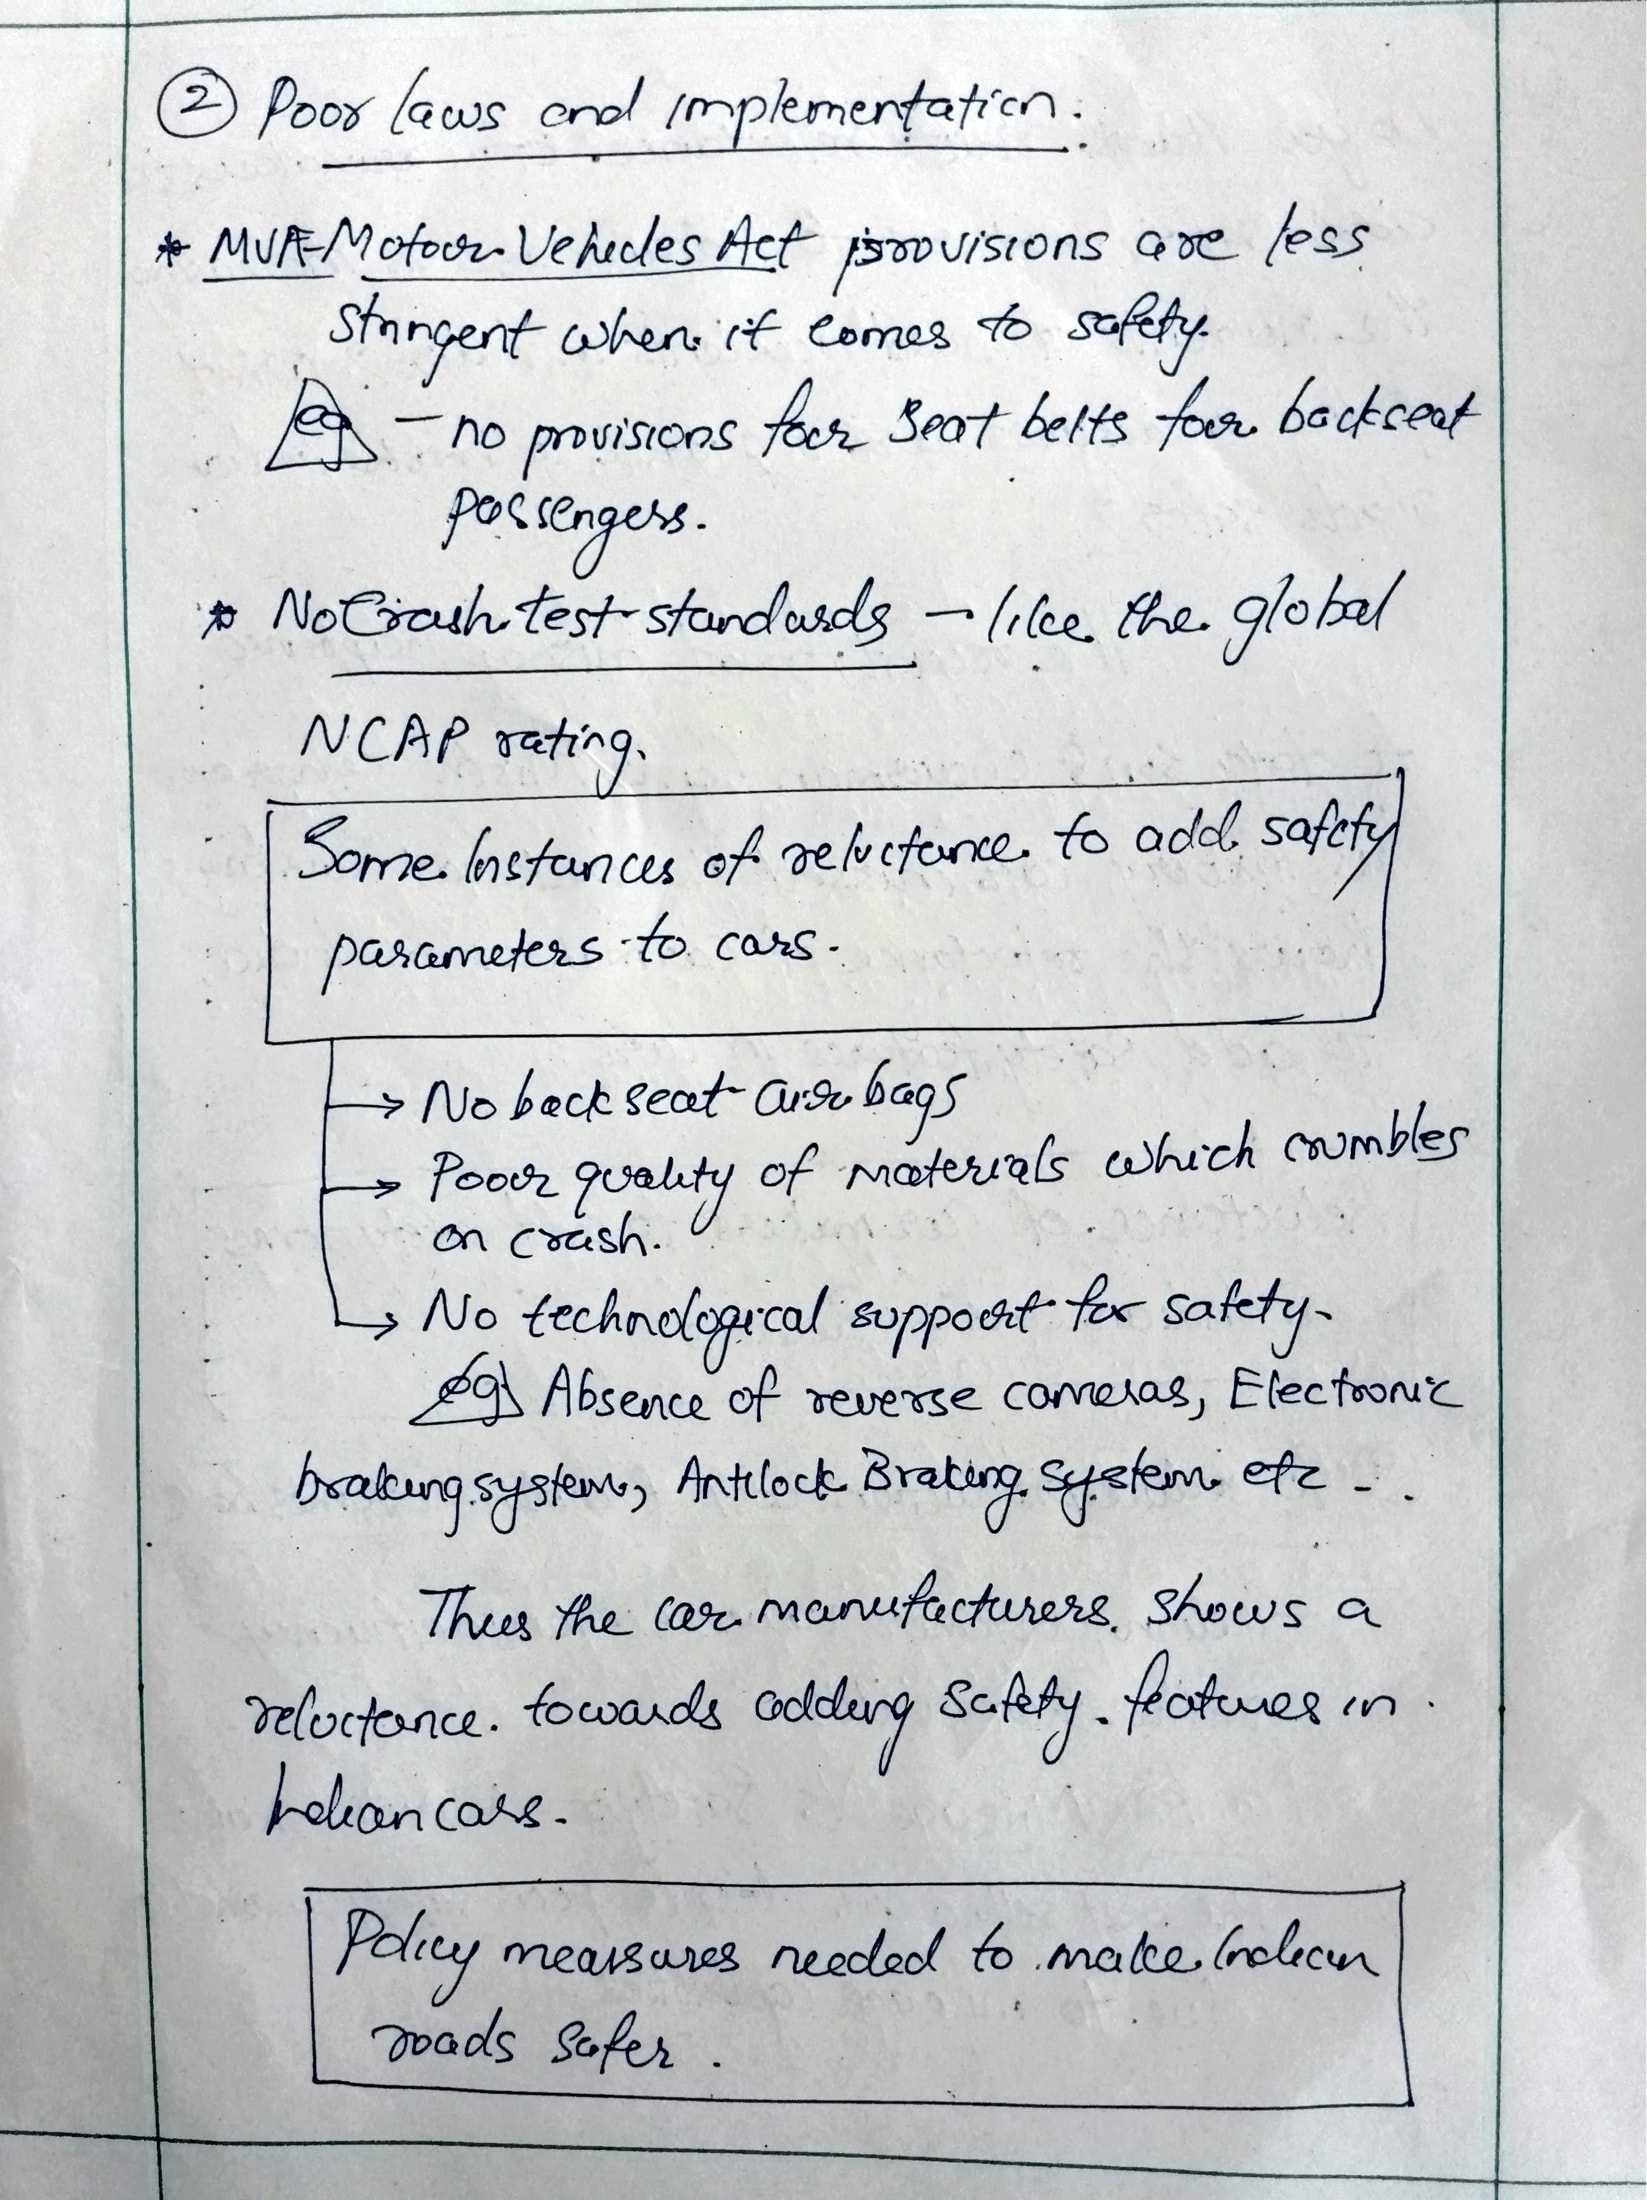 ② Poor laws and implementation.
* MVA-Motor Vehicles Act provisions are less
stringent when it comes to safety.
eg - no provisions for Seat belts for backseat
passengers.
* No Crash test standards - like the global
NCAP rating.
Some Instances of reluctance to add safety
parameters to cars.
→ No back seat air bags
→ Poor quality of materials which crumbles
on crash.
→ No technological support for safety.
eg Absence of reverse cameras, Electronic
braking system, Antilock Braking System etc - .
Thus the car manufacturers shows a
reluctance towards adding safety features in
Indian cars.
Policy mearsures needed to make Indian
roads safer.